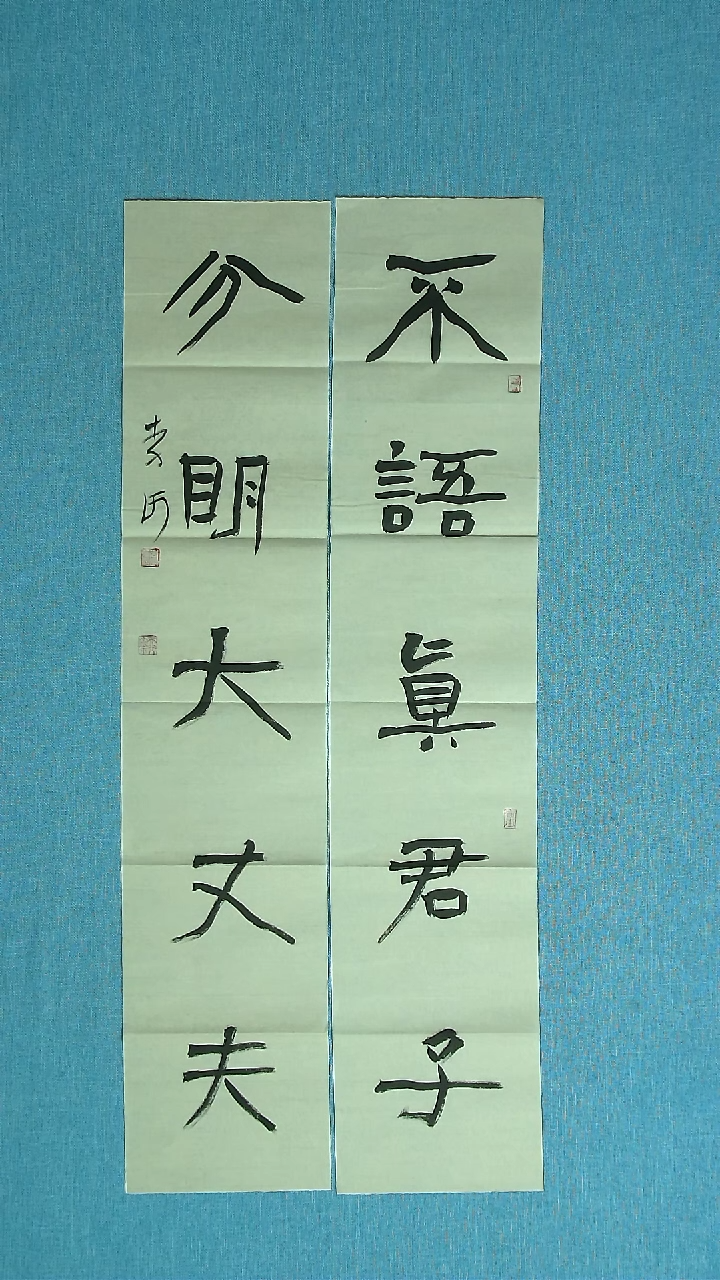 不語真君子
分明大丈夫